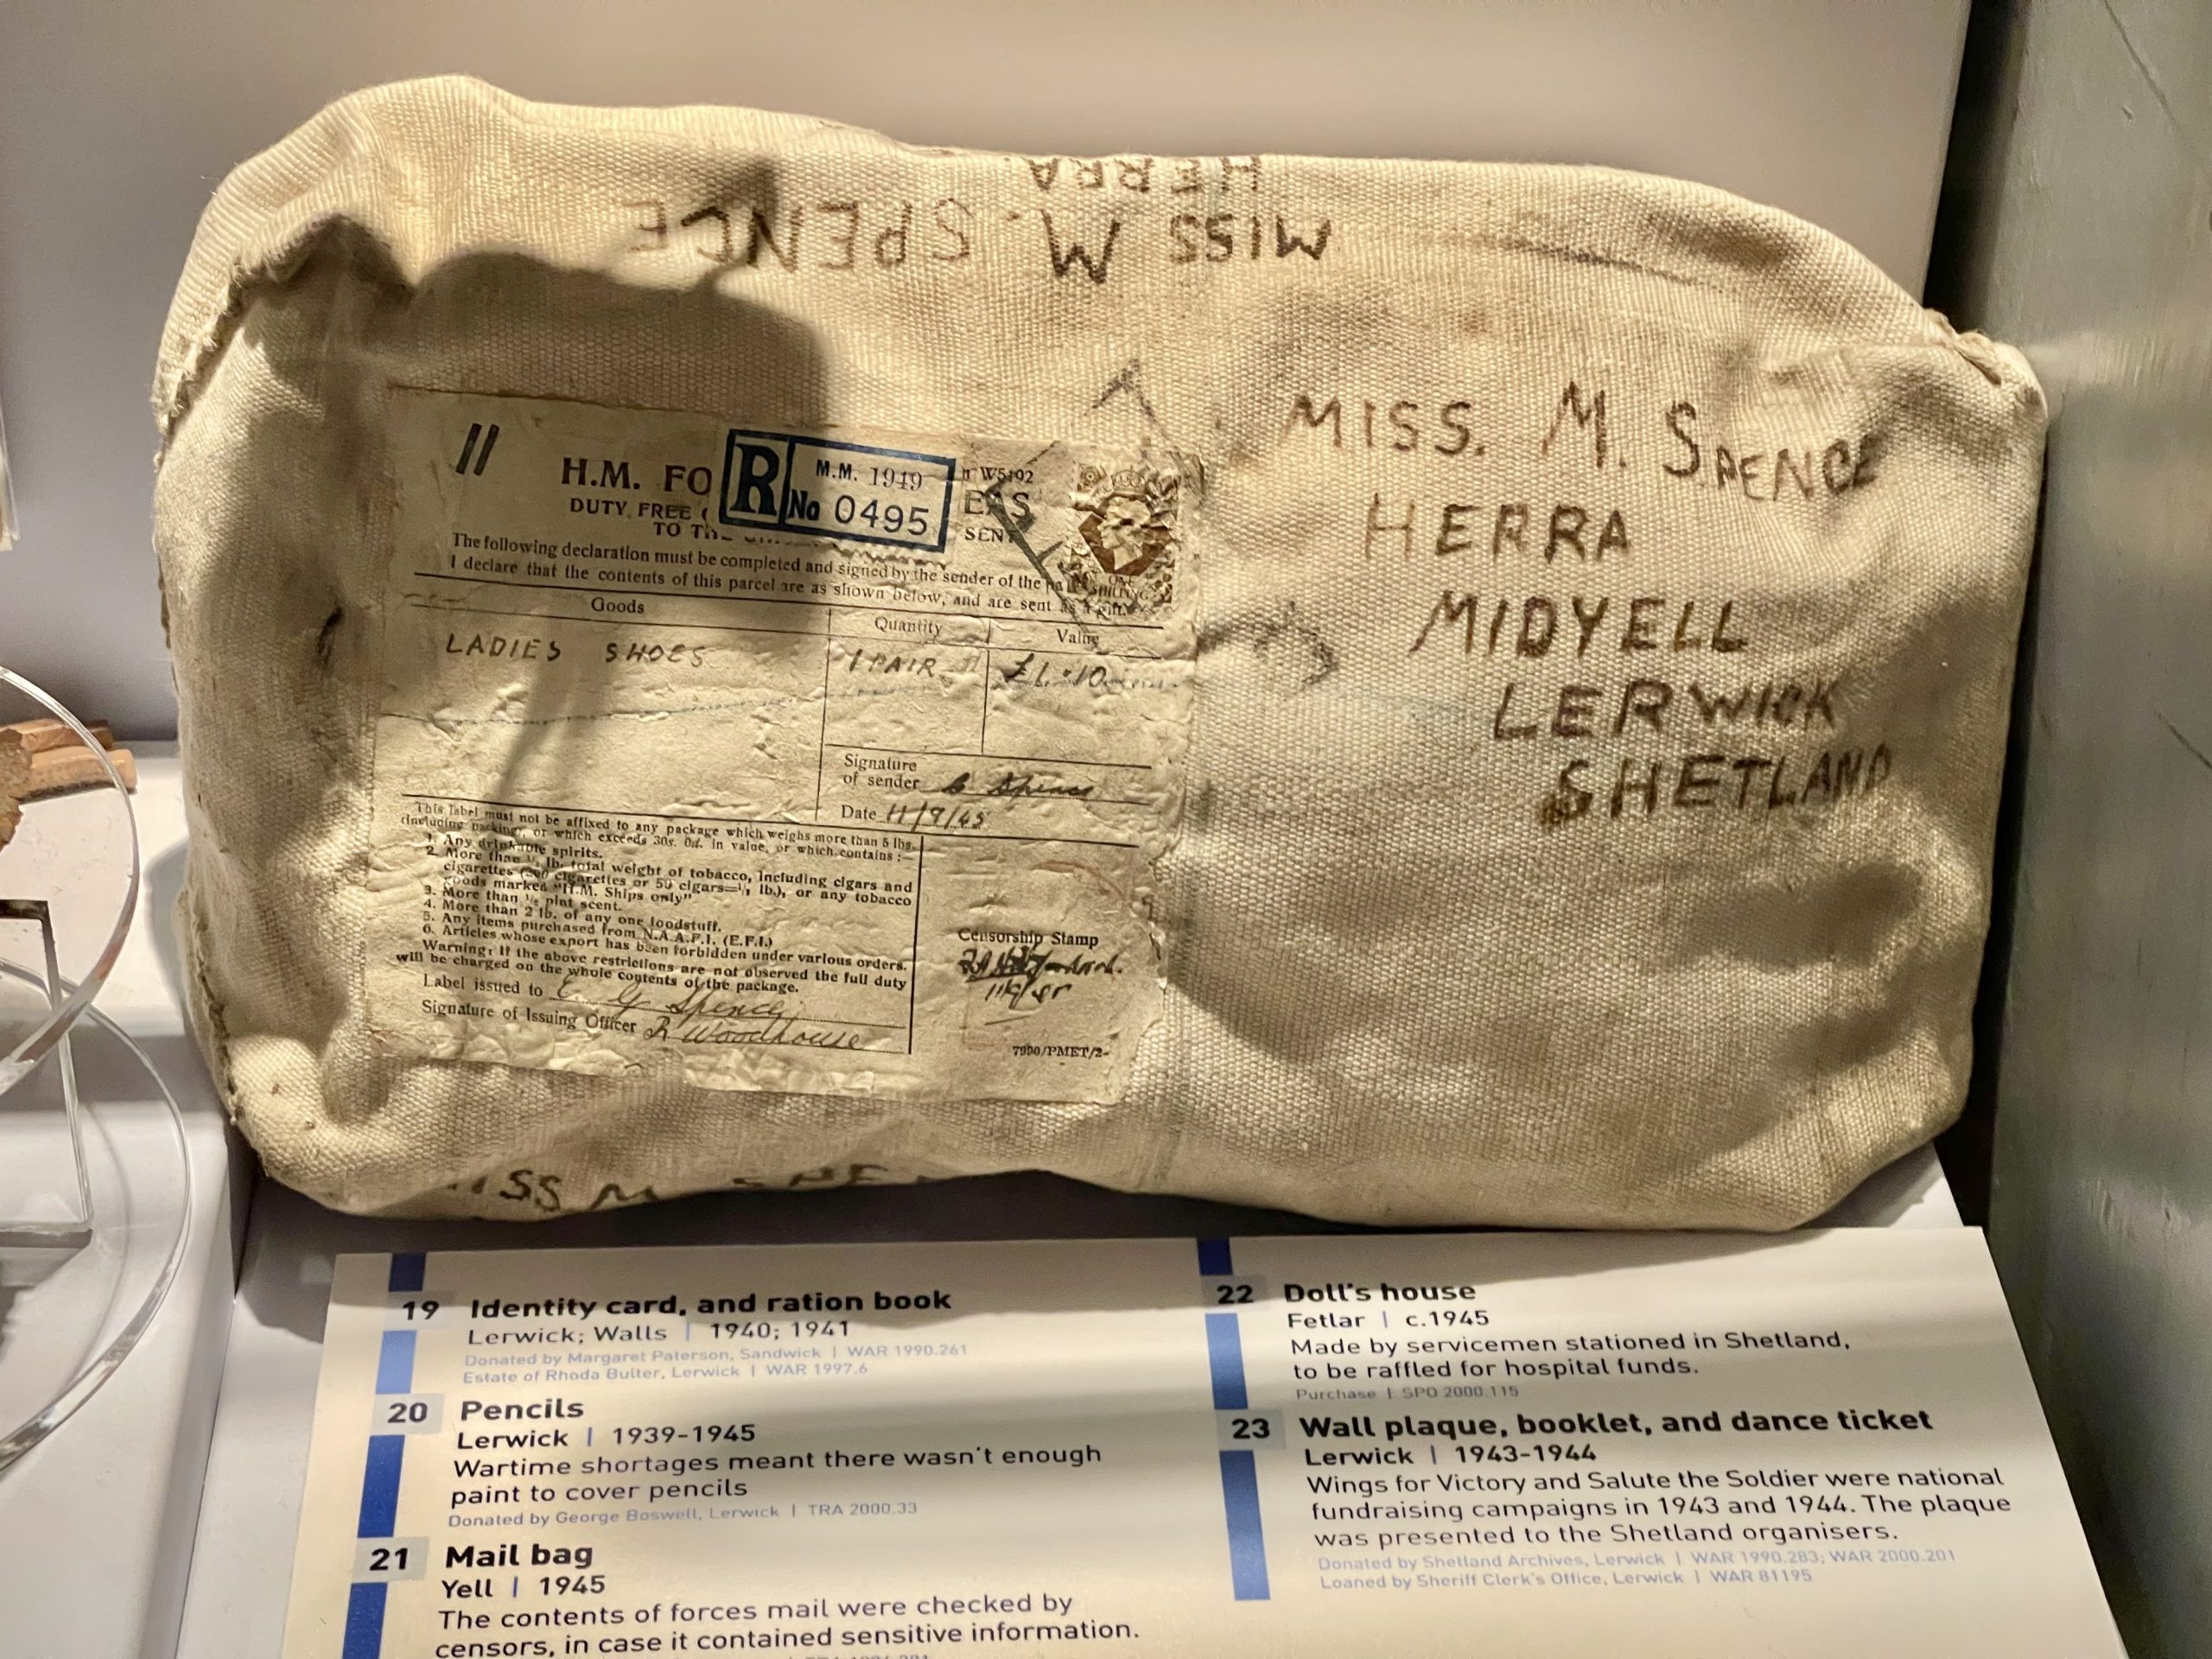 HERRA.
MISS M. SPENCE
MISS. M. SPENCE
HERRA
MIDYELL
LERWICK
SHETLAND
H.M. FO
R M.M. 1949
No 0495
W5192
EAS
DUTY FREE
SENT
TO
ONE
SHILLING
The following declaration must be completed and signed by the sender of the
I declare that the contents of this parcel are as shown below, and are sent as a gift.
Goods Quantity Value
LADIES SHOES 1 PAIR £1.10
Signature
of sender Spence
Date 11/9/45
This label must not be affixed to any package which weighs more than 5 lbs.
(including packing), or which exceeds 30s. 0d. in value, or which contains :—
1. Any drinkable spirits.
2. More than ½ lb. total weight of tobacco, including cigars and
cigarettes (200 cigarettes or 50 cigars=½ lb.), or any tobacco
goods marked "H.M. Ships only"
3. More than ½ pint scent.
4. More than 2 lb. of any one foodstuff.
5. Any items purchased from N.A.A.F.I. (E.F.I.)
6. Articles whose export has been forbidden under various orders.
Warning: If the above restrictions are not observed the full duty
will be charged on the whole contents of the package.
Label issued to E. G. Spence
Signature of Issuing Officer R Woodhouse
Censorship Stamp
7990/PMET/2-
ISS M SPE
19 Identity card, and ration book
Lerwick; Walls | 1940; 1941
Donated by Margaret Paterson, Sandwick | WAR 1990.261
Estate of Rhoda Bulter, Lerwick | WAR 1997.6
20 Pencils
Lerwick | 1939-1945
Wartime shortages meant there wasn't enough
paint to cover pencils
Donated by George Boswell, Lerwick | TRA 2000.33
21 Mail bag
Yell | 1945
The contents of forces mail were checked by
censors, in case it contained sensitive information.
22 Doll's house
Fetlar | c.1945
Made by servicemen stationed in Shetland,
to be raffled for hospital funds.
Purchase | SPO 2000.115
23 Wall plaque, booklet, and dance ticket
Lerwick | 1943-1944
Wings for Victory and Salute the Soldier were national
fundraising campaigns in 1943 and 1944. The plaque
was presented to the Shetland organisers.
Donated by Shetland Archives, Lerwick | WAR 1990.283; WAR 2000.201
Loaned by Sheriff Clerk's Office, Lerwick | WAR 81195